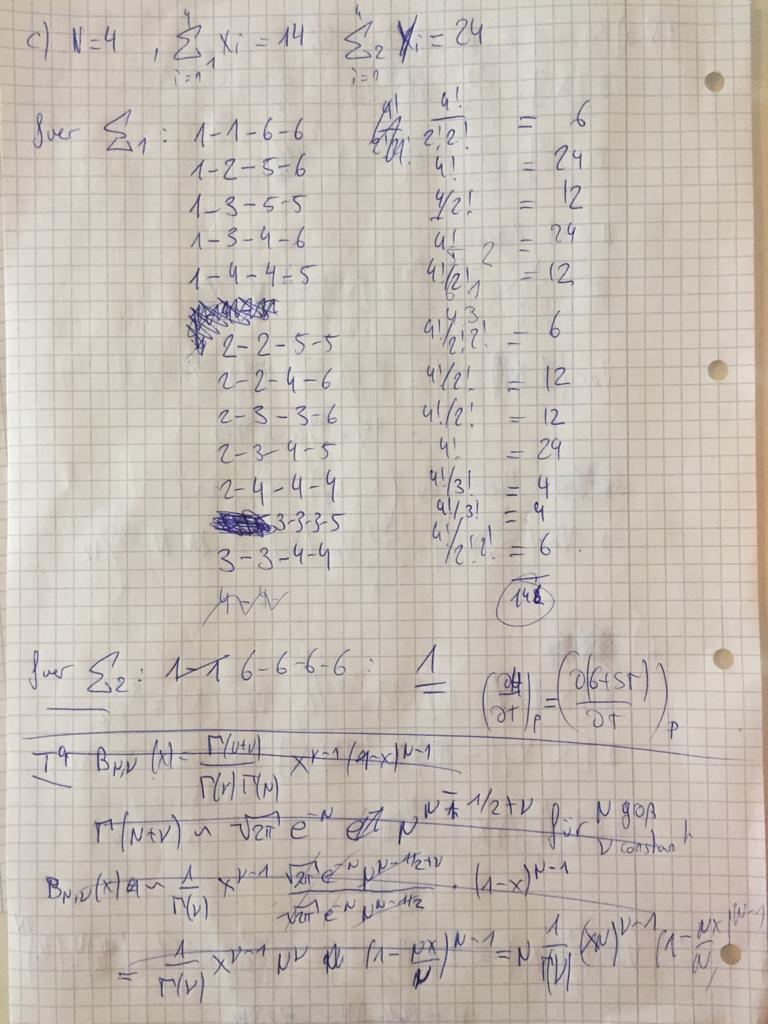 c) N=4 , ∑₁ i=1 4 Xi = 14 ∑₂ i=1 4 Xi = 24
∑₁: 1-1-6-6 4!/2!2! = 6
1-2-5-6 4! = 24
1-3-5-5 4/2! = 12
1-3-4-6 4! = 24
1-4-4-5 4!/2! = 12
2-2-5-5 4!/2!2! = 6
2-2-4-6 4!/2! = 12
2-3-3-6 4!/2! = 12
2-3-4-5 4! = 24
2-4-4-4 4!/3! = 4
3-3-3-5 4!/3! = 4
3-3-4-4 4!/2!2! = 6
∑₂: 6-6-6-6 : 1 (∂H/∂T)p = (∂(G+ST)/∂T)p
B_{N,ν}(x) = Γ(N+ν)/Γ(ν)Γ(N) x^{ν-1} (1-x)^{N-1}
Γ(N+ν) ~ √2π e^{-N} N^{N-1/2+ν} für N groß
ν constant
B_{N,ν}(x) ~ 1/Γ(ν) x^{ν-1} √2π e^{-N} N^{N-1/2+ν}/√2π e^{-N} N^{N-1/2} · (1-x)^{N-1}
= 1/Γ(ν) x^{ν-1} N^ν (1-Nx/N)^{N-1} = N 1/Γ(ν) (xN)^{ν-1} (1-Nx/N)^{N-1}